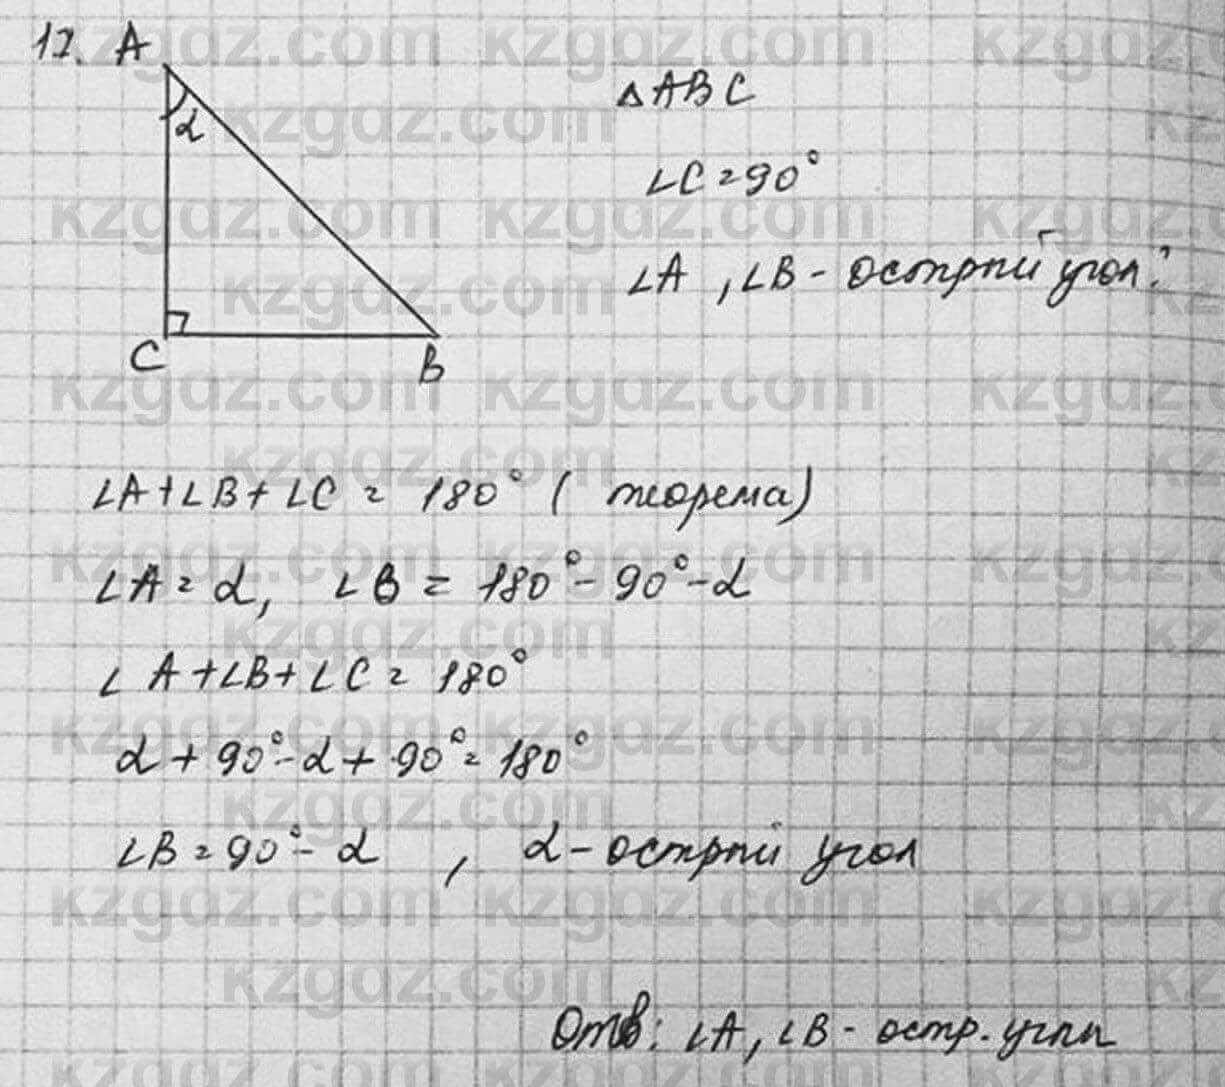 17. A
α
C
B
△ABC
∠C = 90°
∠A, ∠B - острый угол?
∠A + ∠B + ∠C = 180° (теорема)
∠A = α, ∠B = 180° - 90° - α
∠A + ∠B + ∠C = 180°
α + 90° - α + 90° = 180°
∠B = 90° - α, α - острый угол
Отв: ∠A, ∠B - остр. углы
kzgdz.com